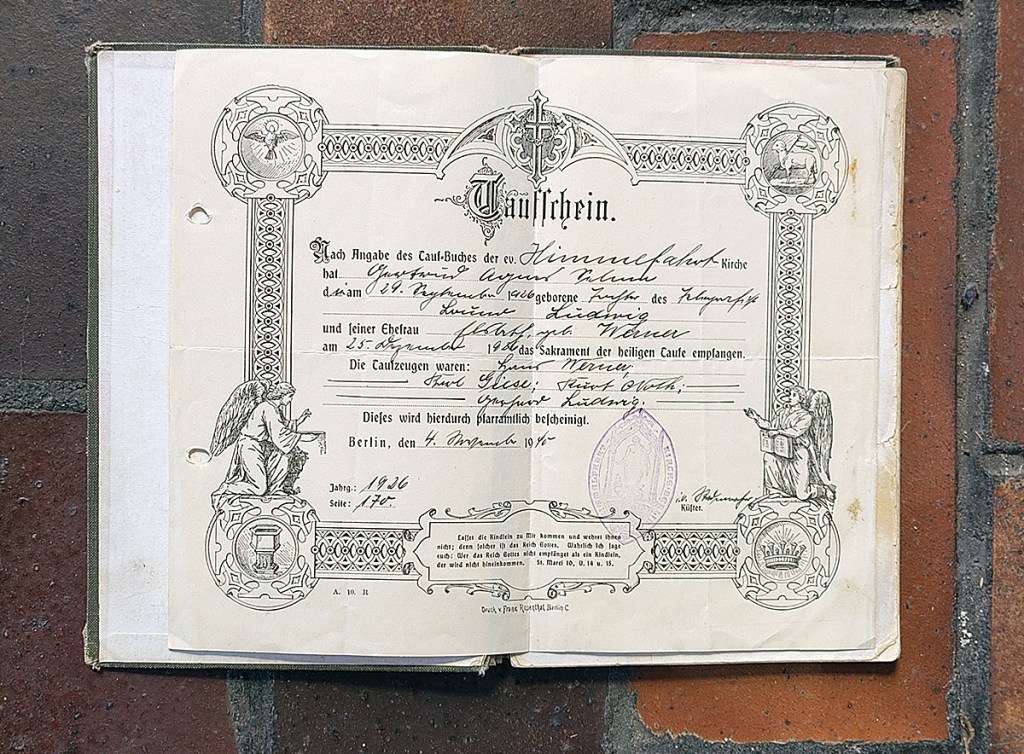 Taufschein.
Nach Angabe des Tauf-Buches der ev. Himmelfahrt Kirche
hat Gertrud Agnes
die am 24. September 1926 geborene Tochter des
Ludwig
und seiner Ehefrau geb. Werner
am 25. Dezember 1926 das Sakrament der heiligen Taufe empfangen.
Die Taufzeugen waren: Werner,
Giese; Kurt Noth;
Gerhard Ludwig.
Dieses wird hierdurch pfarramtlich bescheinigt.
Berlin, den 4. November 1945
Jahrg.: 1926
Seite: 170.
i.V.
Küster.
Lasset die Kindlein zu Mir kommen und wehret ihnen
nicht; denn solcher ist das Reich Gottes. Wahrlich ich sage
euch: Wer das Reich Gottes nicht empfänget als ein Kindlein,
der wird nicht hineinkommen. St. Marci 10, V. 14 u. 15.
A. 10. R
Druck v. Franz Rosenthal, Berlin C